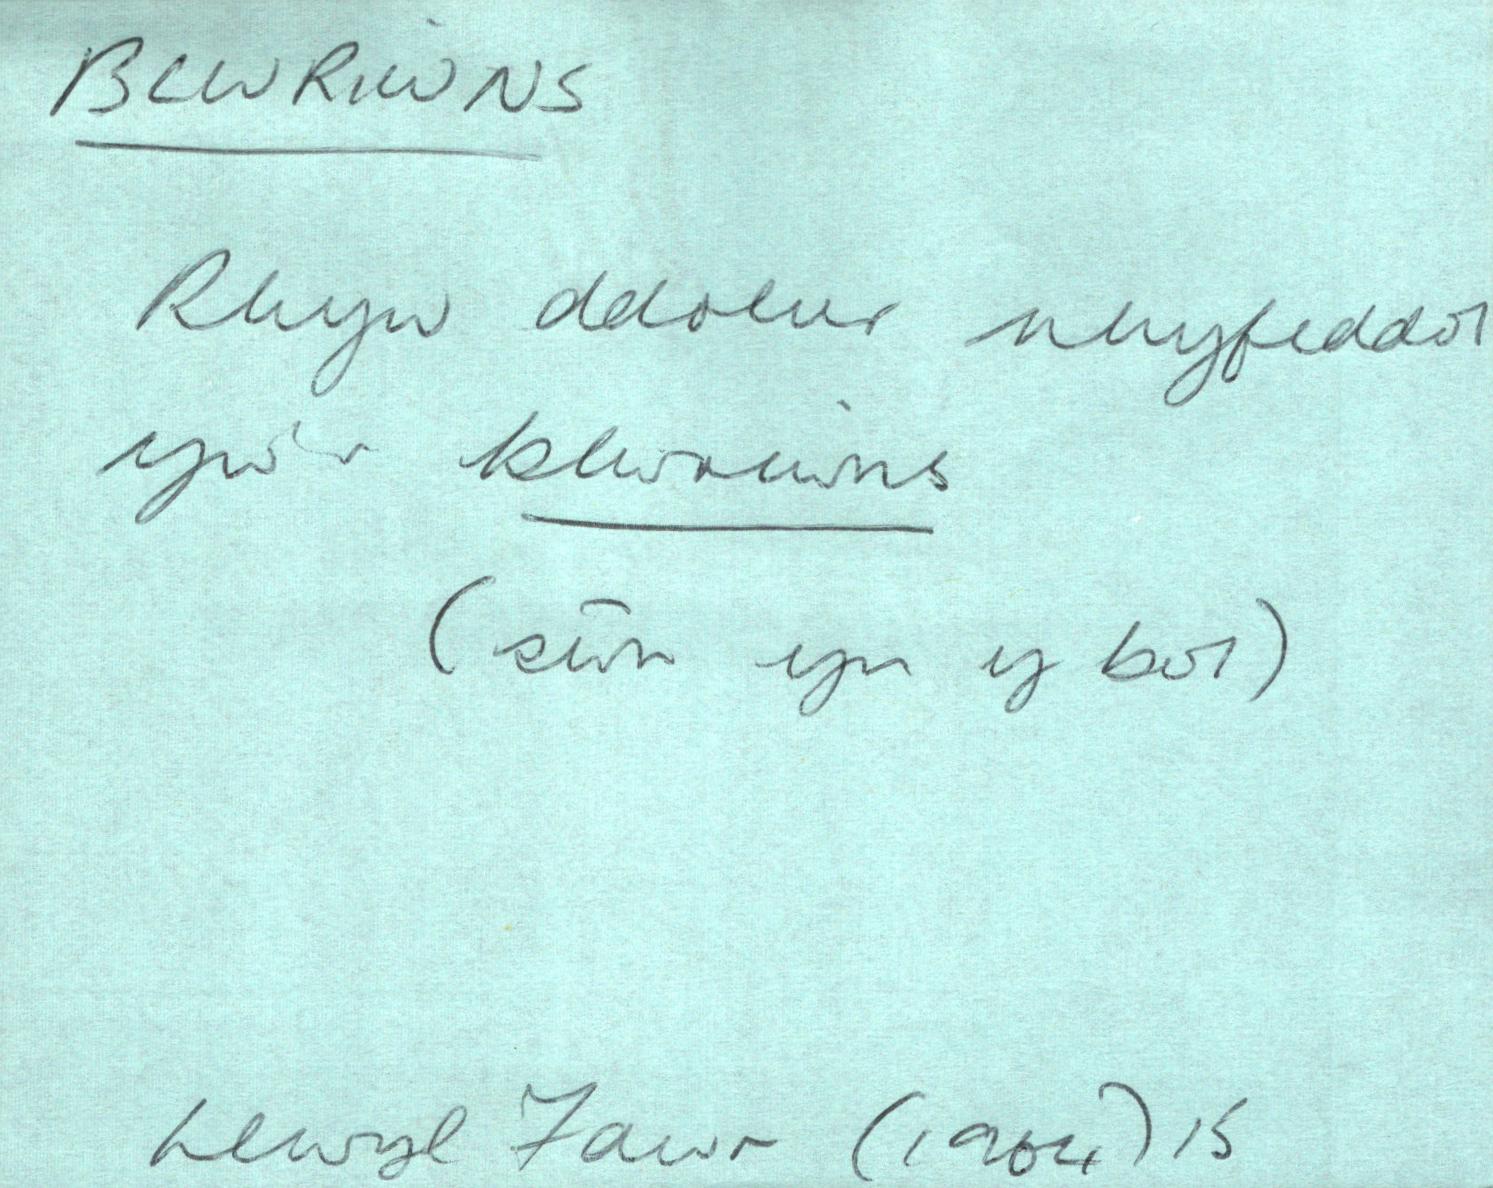 BLWRIWNS
Rhyw ddolur rhyfeddol
yw'r blwriwns
(sŵn yn y bol)
Llwyl Fawr (1964) 15